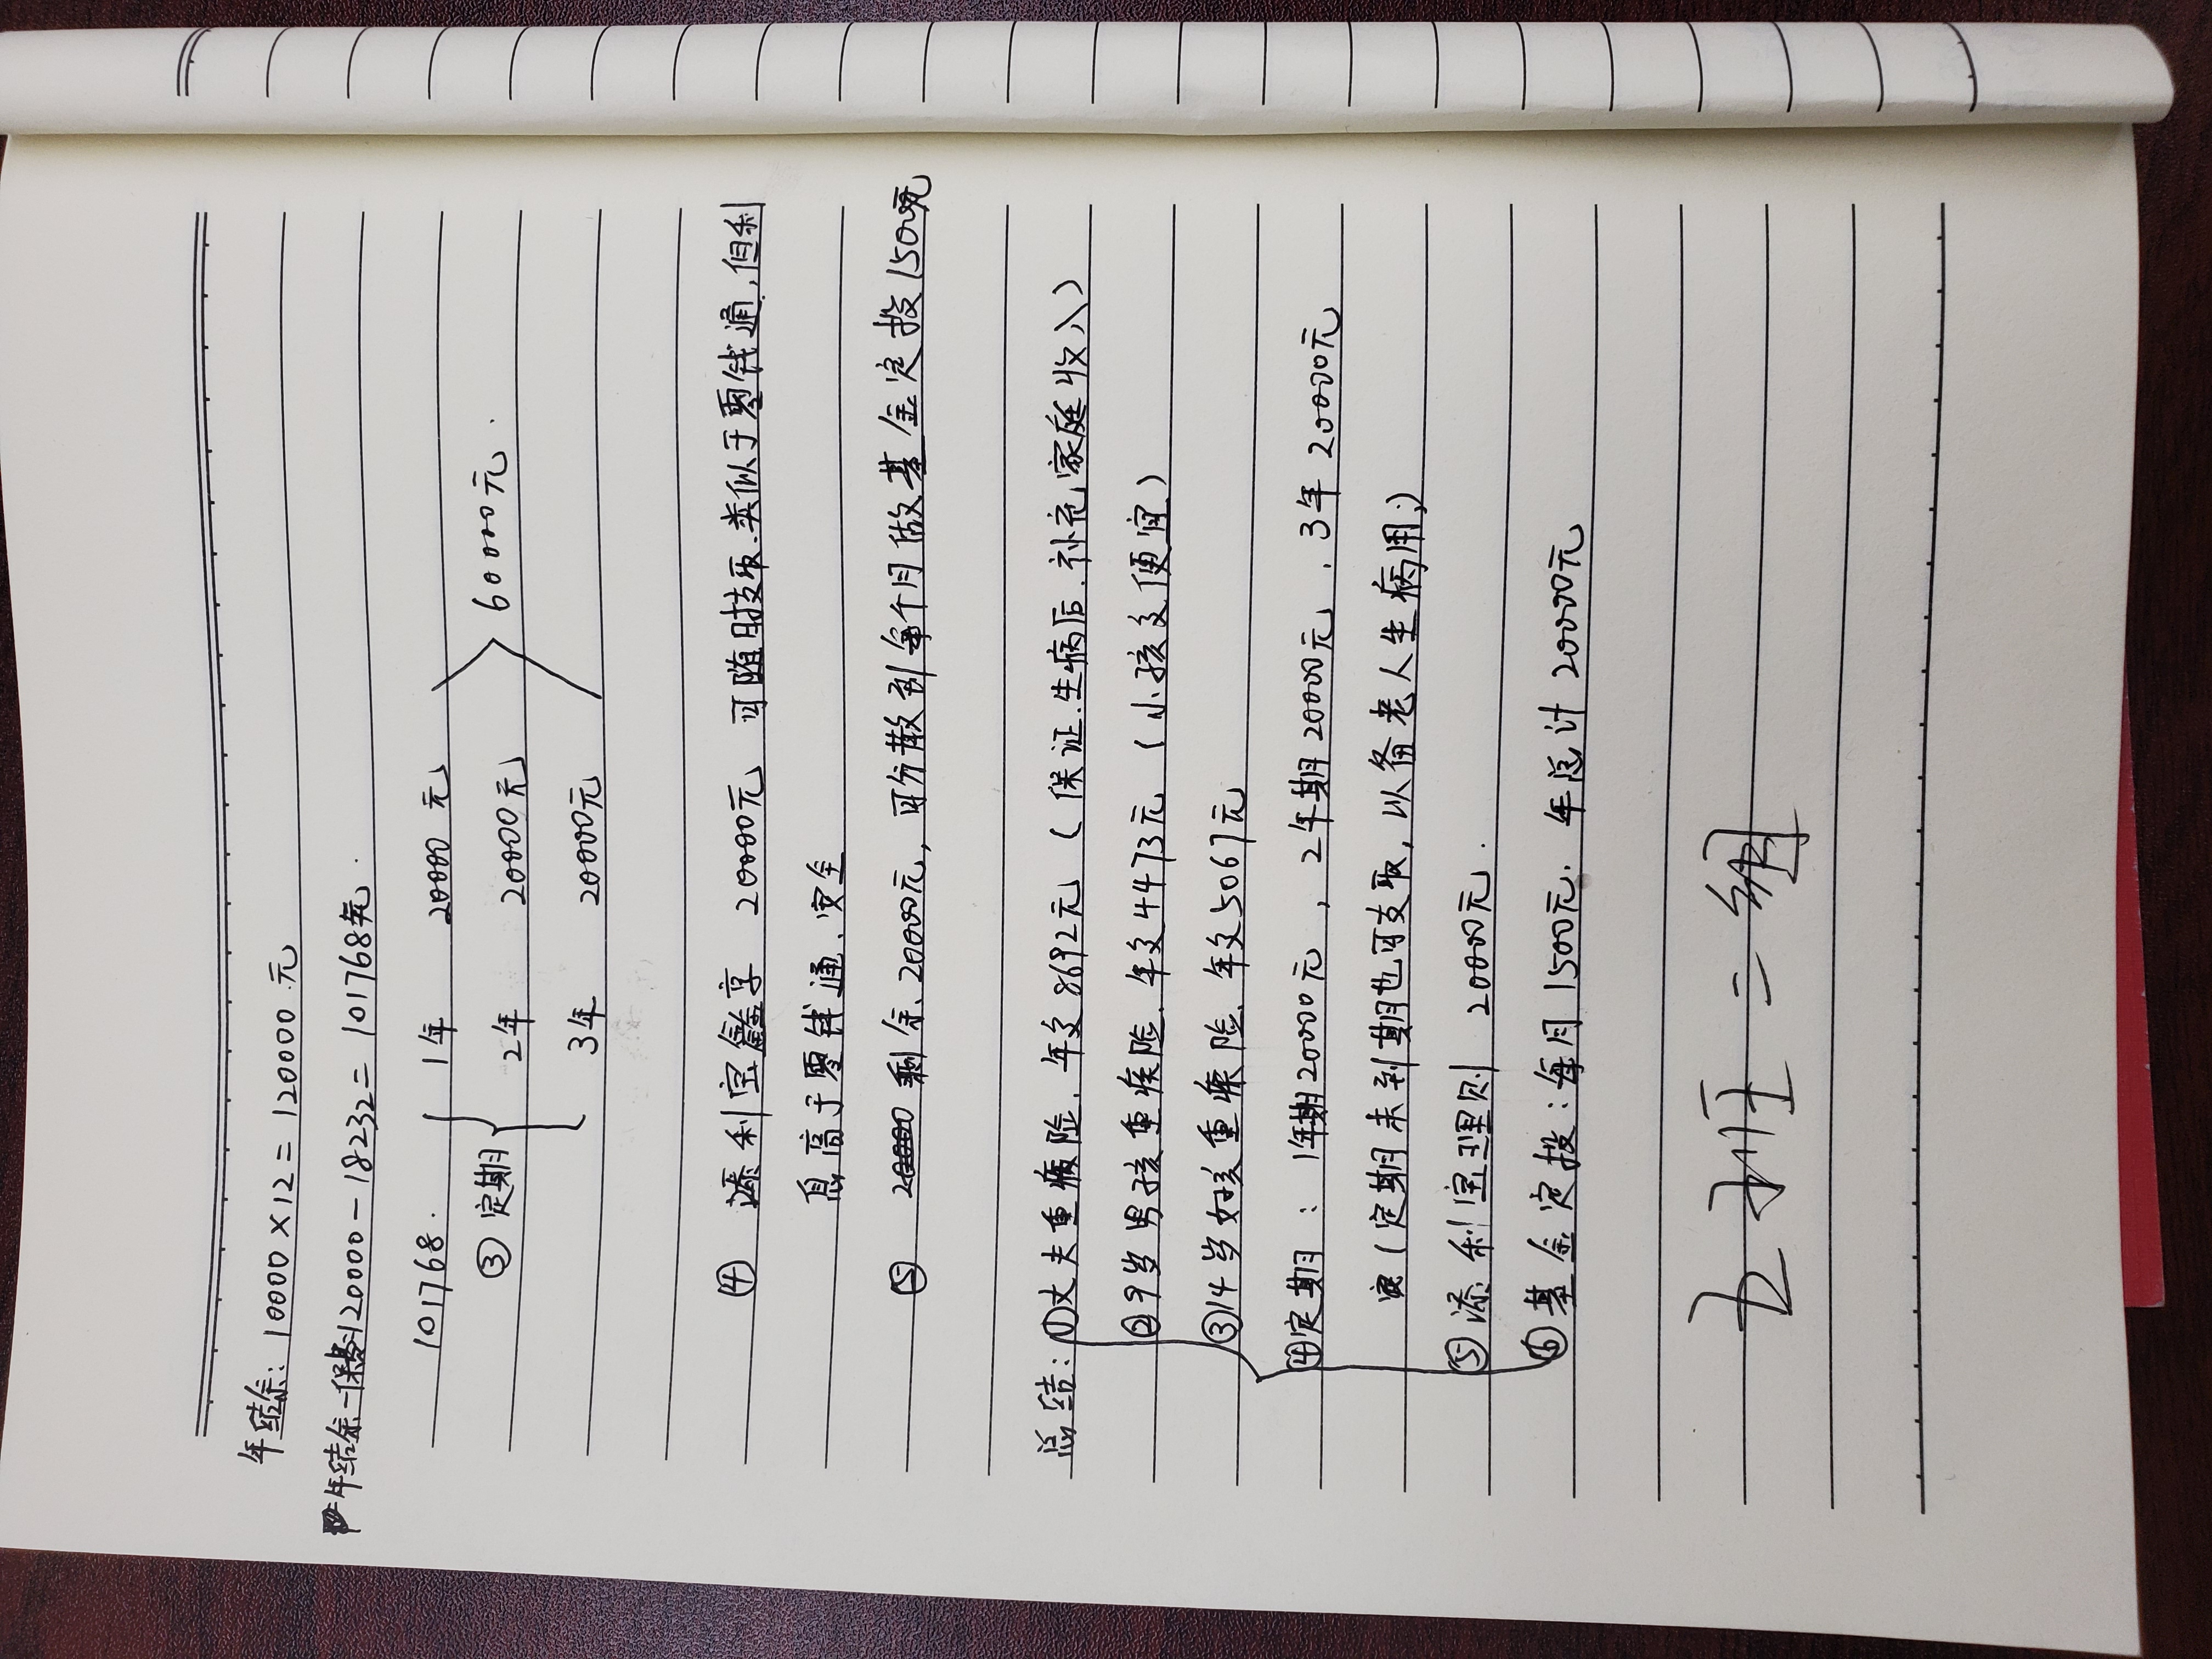 年结余：10000×12=120000元
年结余-保费120000-18232=101768元.
101768.
③定期 1年 20000元
2年 20000元 60000元.
3年 20000元
④ 添利宝鑫享 20000元 可随时支取.类似于零钱通,但利
息高于零钱通、安全
⑤ 剩余20000元,可分散到每个月做基金定投1500元
总结：①丈夫重疾险.年交8692元（保证生病后.补充家庭收入）
②9岁男孩重疾险.年交4473元（小孩交便宜）
③14岁女孩重疾险.年交5067元
④定期：1年期20000元,2年期20000元.3年20000元
（定期未到期也可支取,以备老人生病用;）
⑤添利宝理财 20000元.
⑥基金定投：每月1500元.年总计20000元